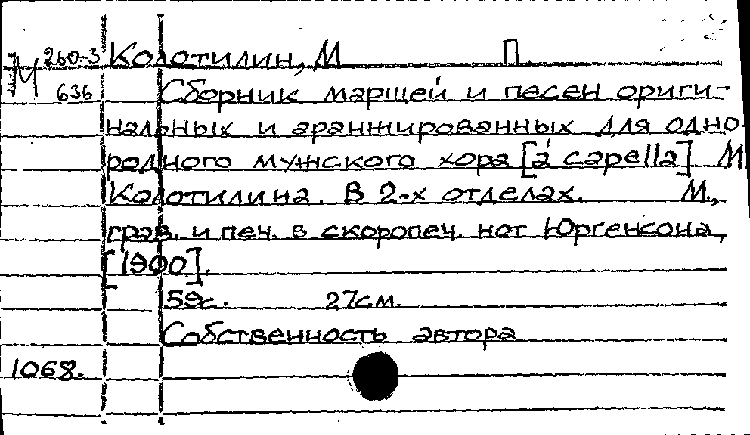 М 260-3 Колотилин, М П
636 Сборник маршей и песен ориги-
нальных и аранжированных для одно
родного мужского хора [á capella] М
Колотилина. В 2-х отделах. М.,
грав. и печ. в скоропеч. нот Юргенсона,
[1900].
59с. 27см.
Собственность автора
1068.